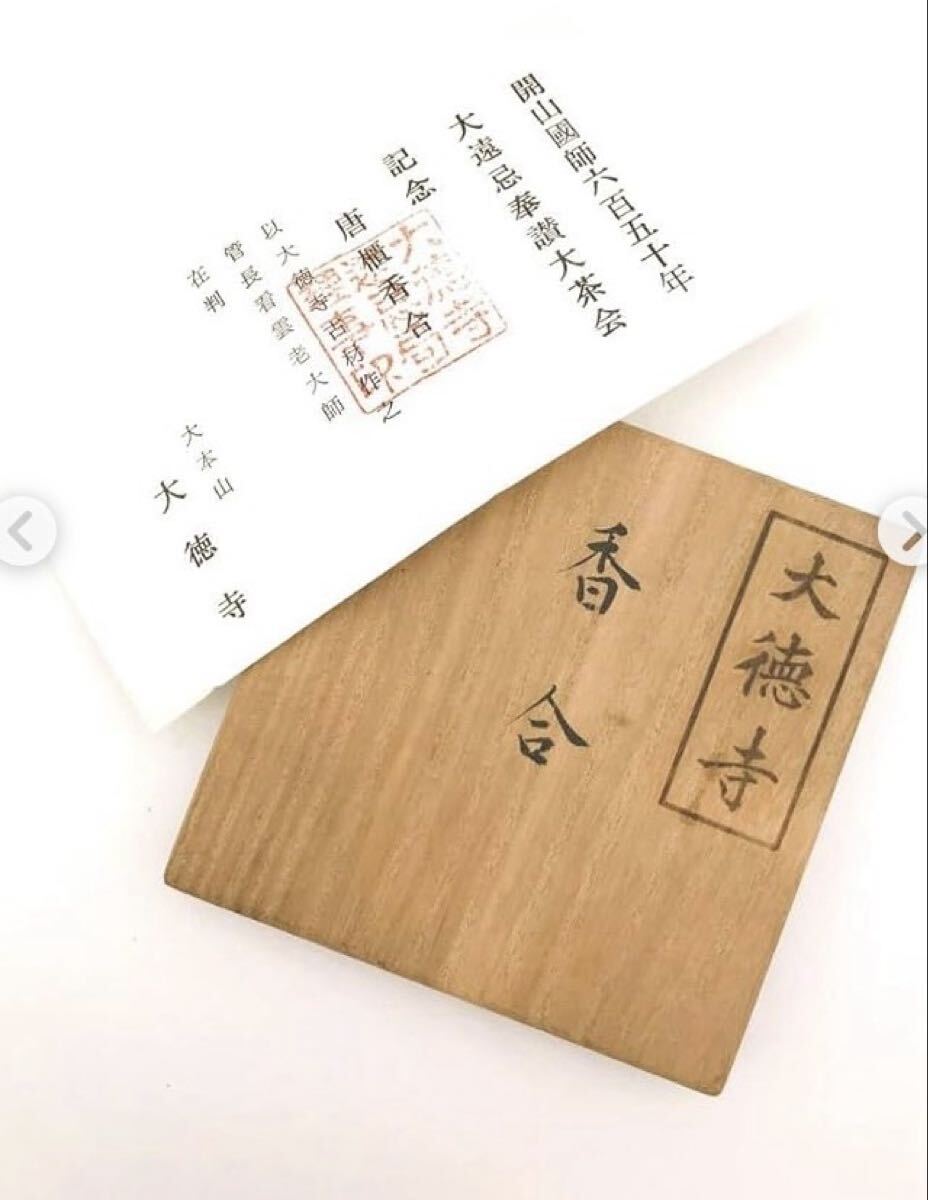 開山國師六百五十年
大遠忌奉讃大茶会
記念
唐櫃香合
以大徳寺古材作之
管長看雲老大師
在判
大本山
大徳寺
大徳寺
香合